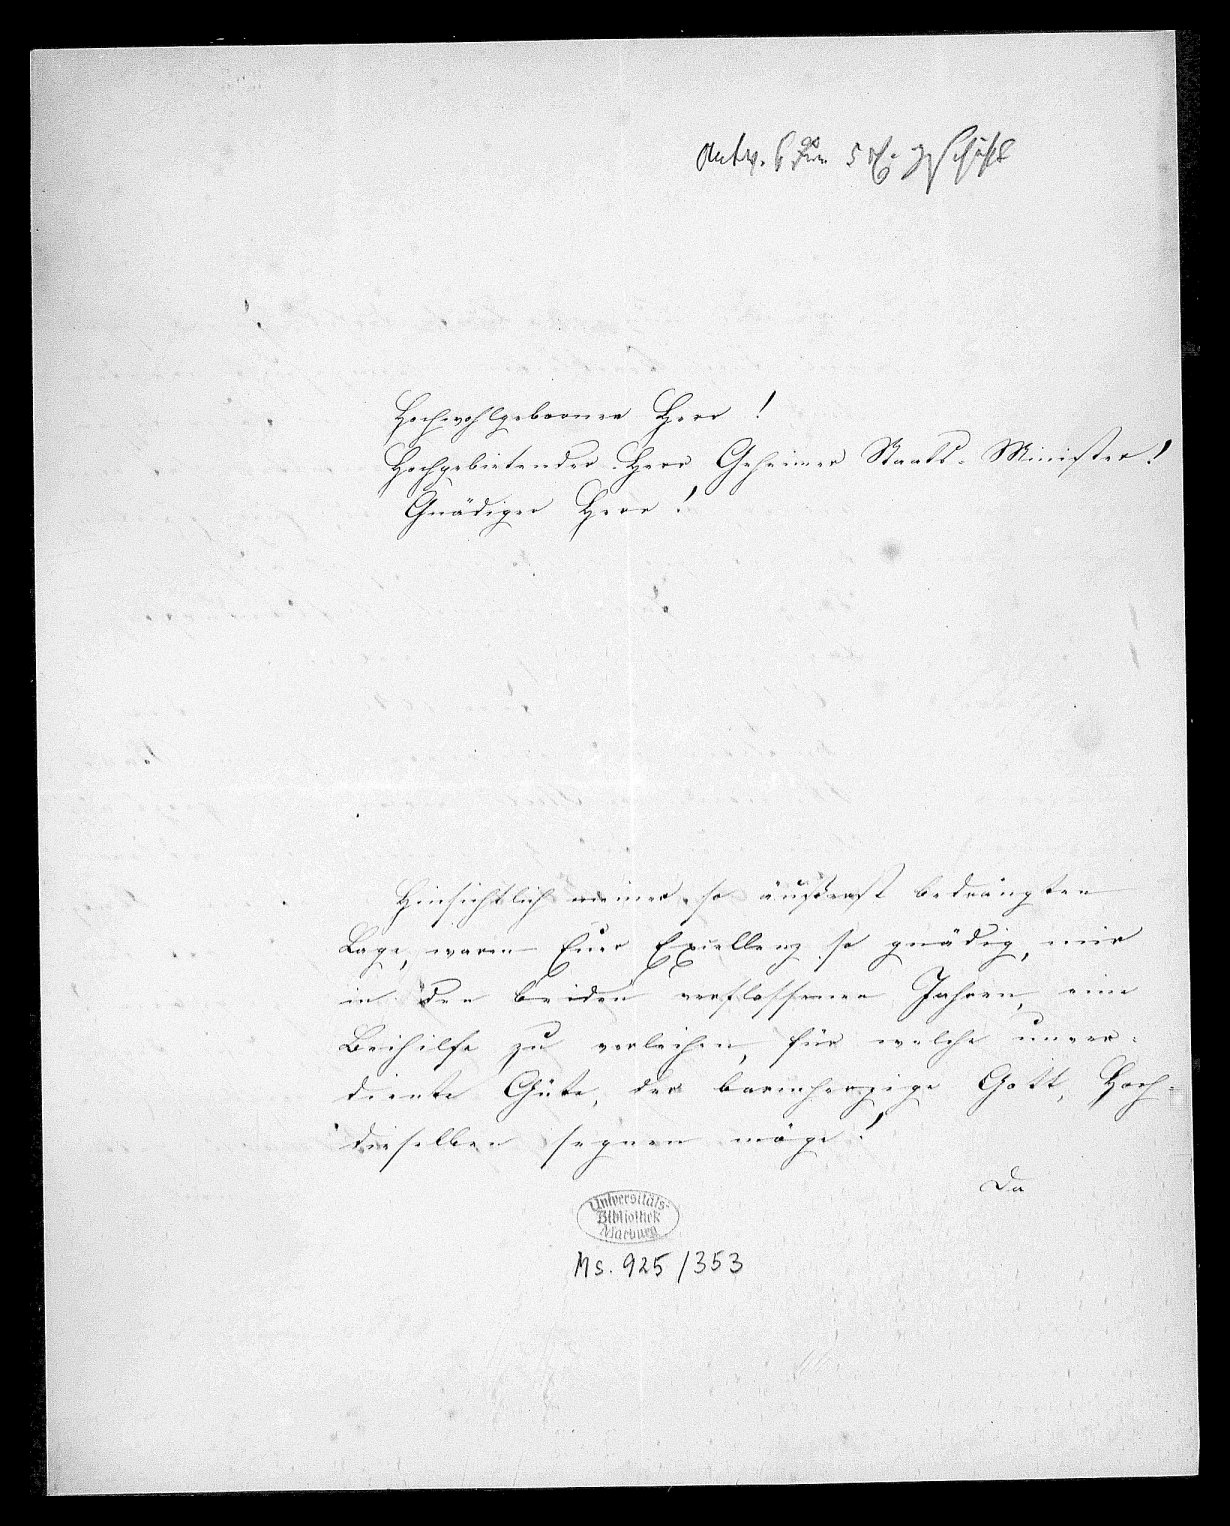 Antw. 6 Jan 5 rℓ.
Hochwohlgeborner Herr!
Hochgebietender Herr Geheimer Staats-Minister!
Gnädiger Herr!
Hinsichtlich meiner so äußerst bedrängten
Lage, waren Euer Exzellenz so gnädig, mir
in den beiden verflossenen Jahren, eine
Beihilfe zu verleihen, für welche unver-
diente Güte, der barmherzige Gott, Hoch-
dieselben segnen möge!
Da
Universitäts-
Bibliothek
Marburg
Ms. 925/353